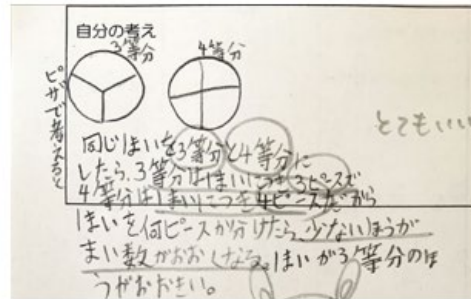 自分の考え
3等分
4等分
ピザで考えると
とてもいい
同じ1まいを3等分と4等分に
したら、3等分は1まいにつき3ピースだ
4等分は1まいにつき4ピースだから
1まいを何ピースか分けたら、少ないほうが
まい数がおおくなる。1まいが3等分のほ
うがおおきい。